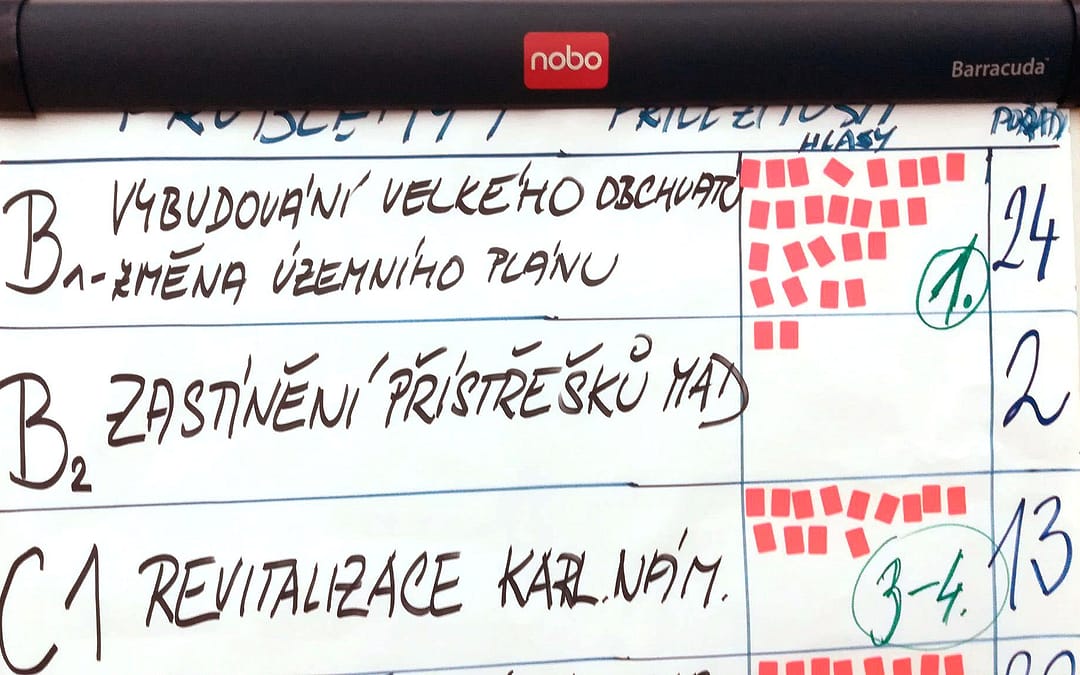 nobo
Barracuda™
PROBLÉMY / PŘÍLEŽITOSTI
HLASY
POŘADÍ
B1 - VYBUDOVÁNÍ VELKÉHO OBCHVATU
ZMĚNA ÚZEMNÍHO PLÁNU
1.
24
B2 ZASTÍNĚNÍ PŘÍSTŘEŠKŮ MAD
2
C1 REVITALIZACE KARL.NÁM.
3-4.
13